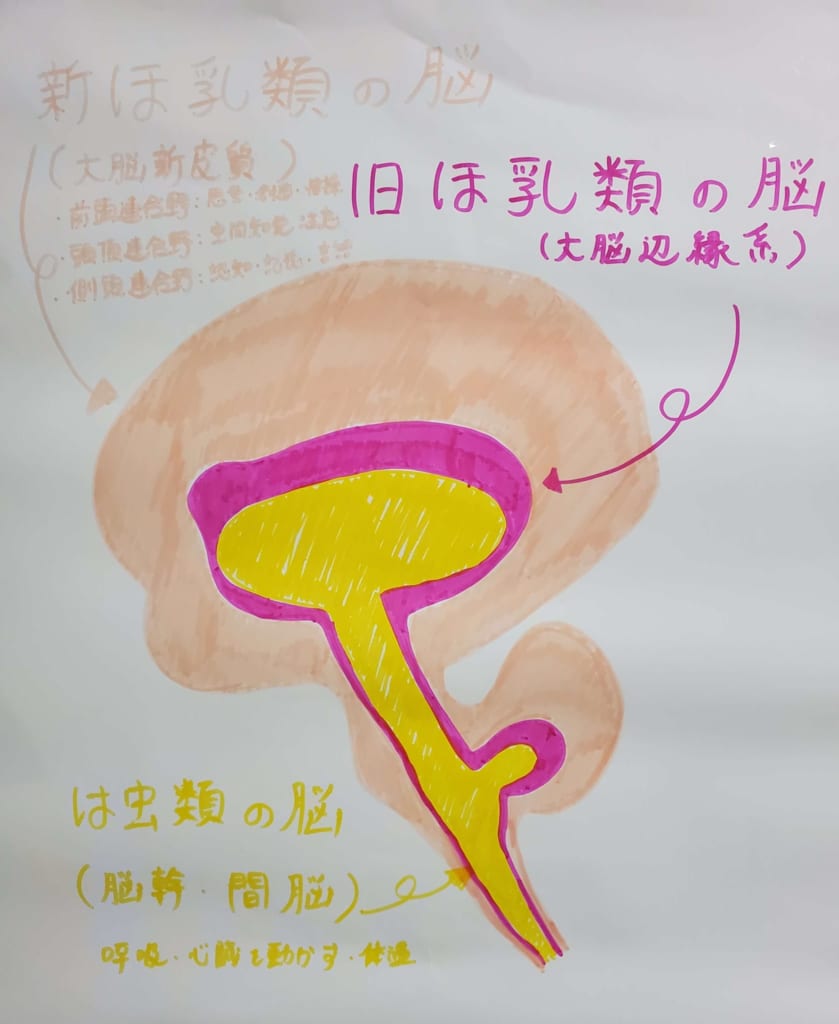 新ほ乳類の脳
(大脳新皮質)
・前頭連合野:思考・創造・
・頭頂連合野:空間知覚・注意
・側頭連合野:認知・記憶・言語
旧ほ乳類の脳
(大脳辺縁系)
は虫類の脳
(脳幹・間脳)
呼吸・心臓を動かす・体温